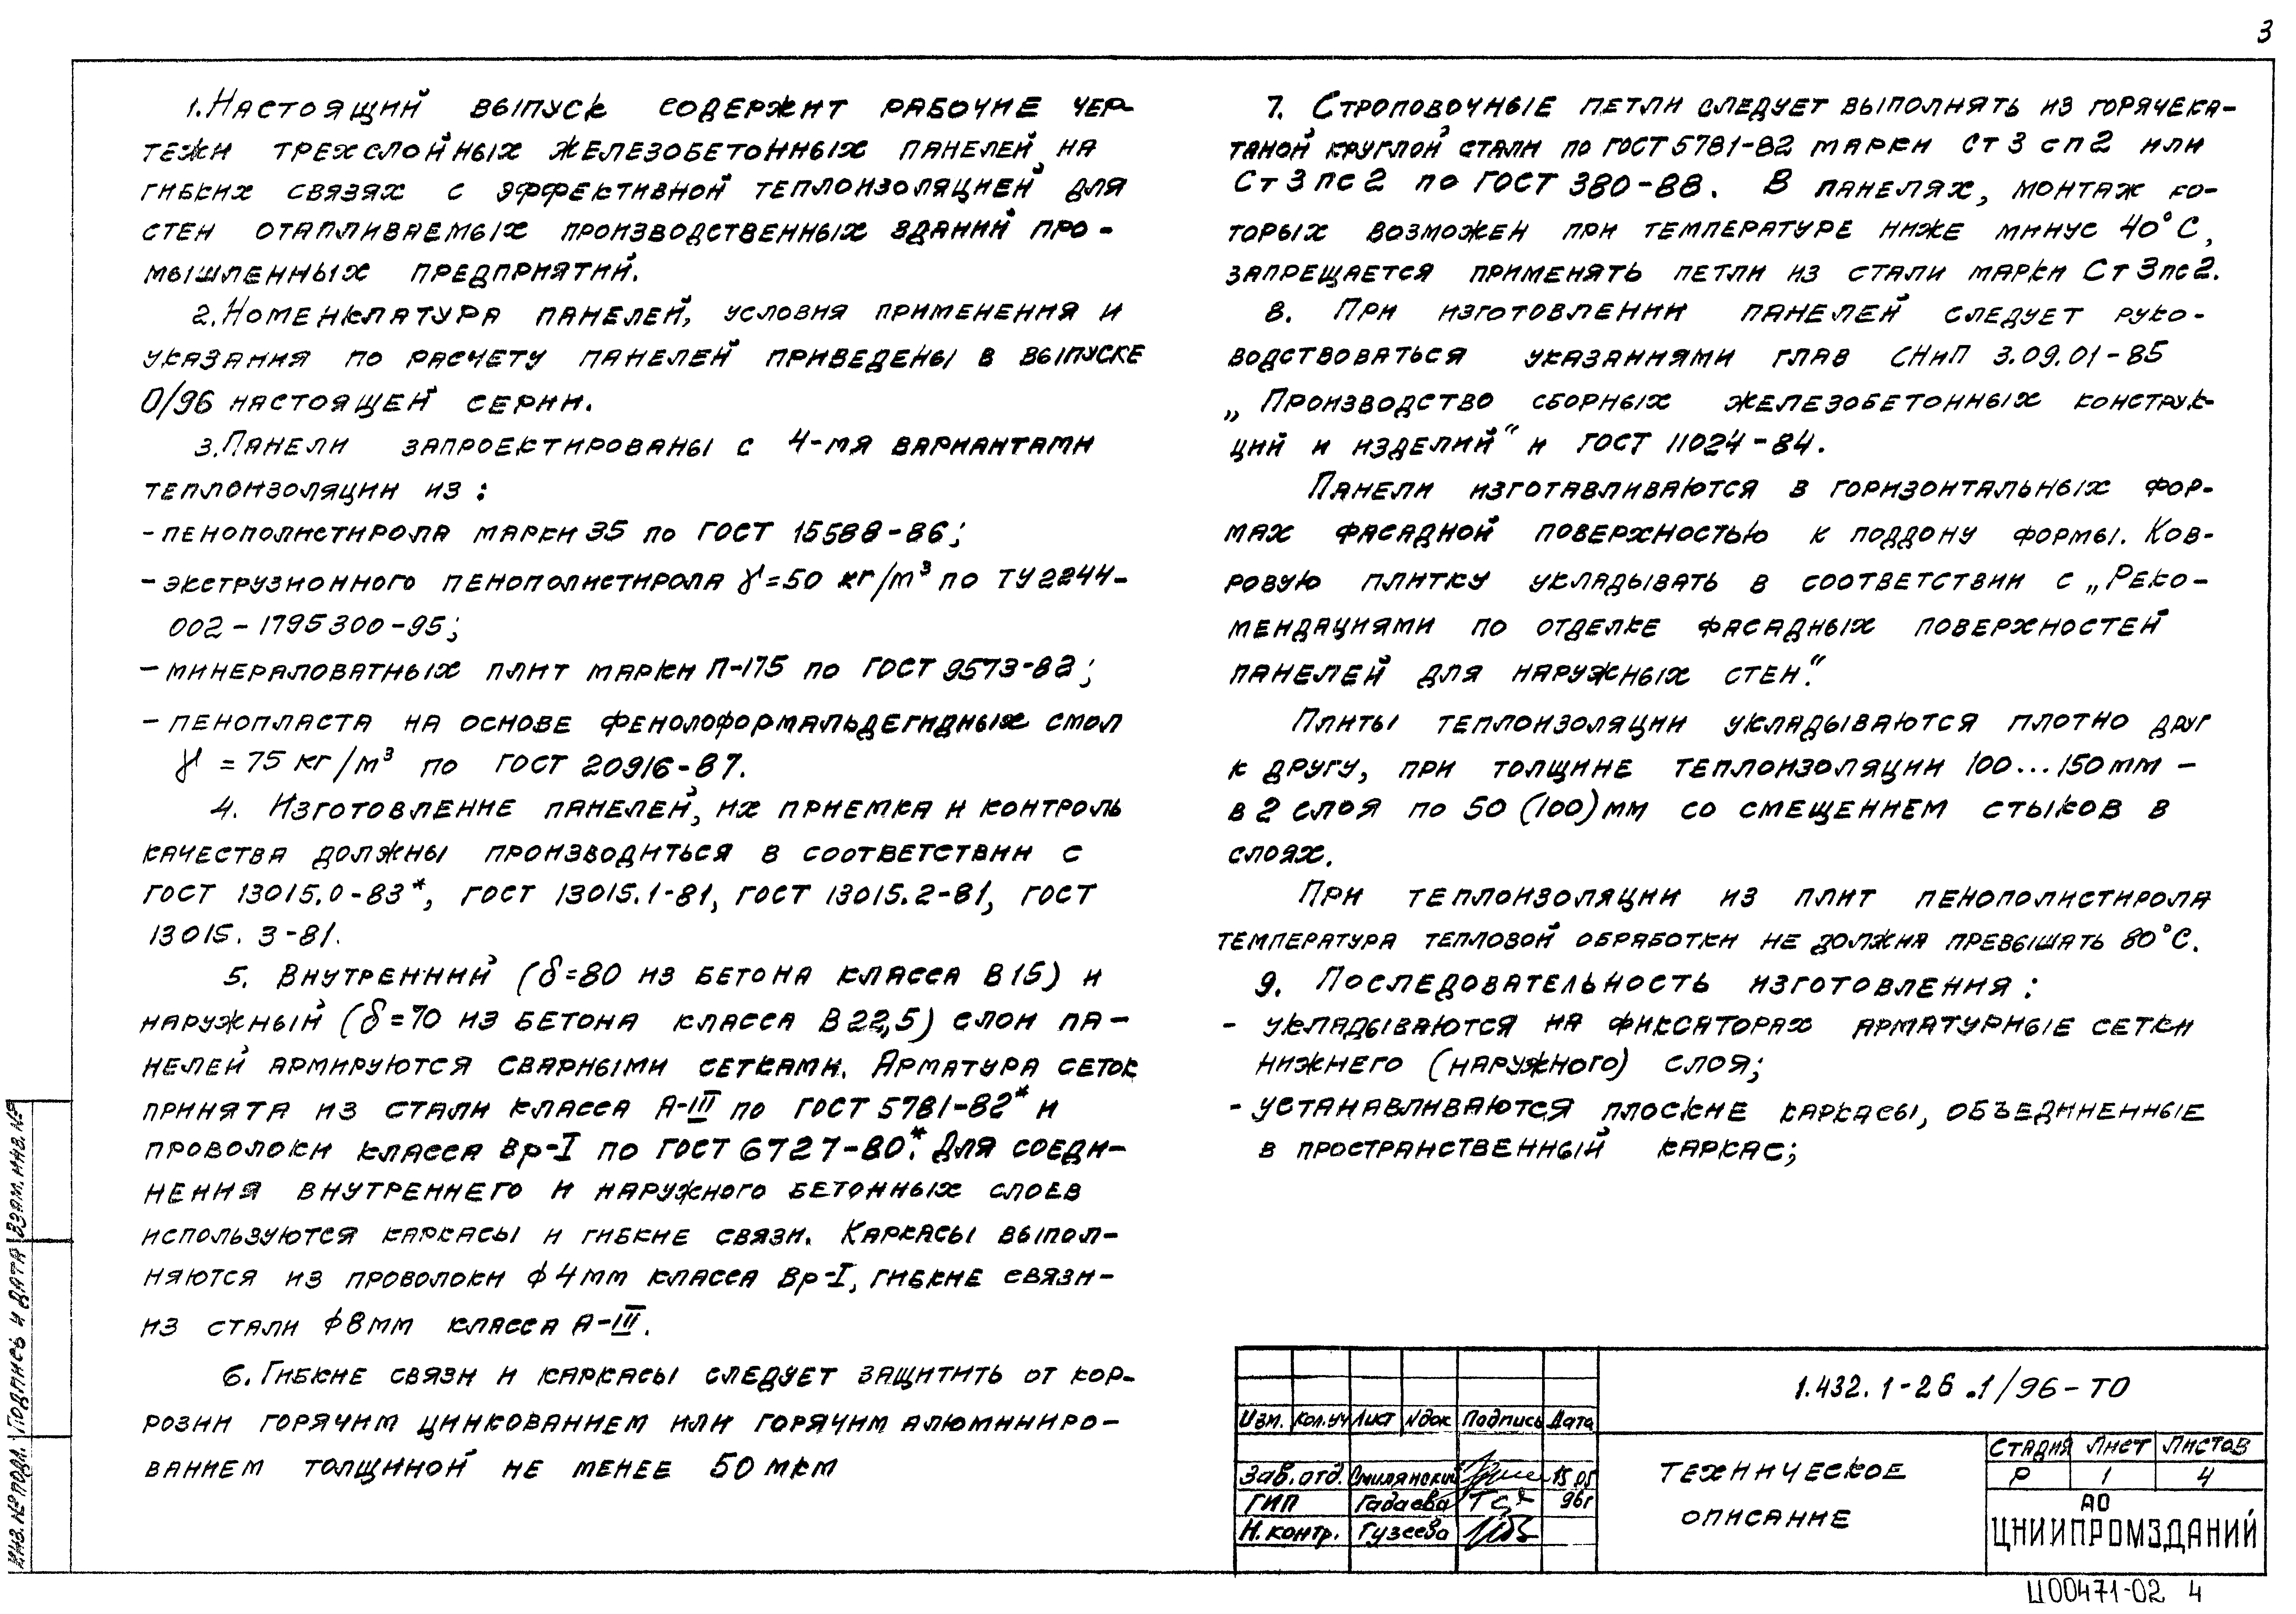 3
1. Настоящий выпуск содержит рабочие чер-
тежи трехслойных железобетонных панелей на
гибких связях с эффективной теплоизоляцией для
стен отапливаемых производственных зданий про-
мышленных предприятий.
2. Номенклатура панелей, условия применения и
указания по расчету панелей приведены в выпуске
0/96 настоящей серии.
3. Панели запроектированы с 4-мя вариантами
теплоизоляции из:
- пенополистирола марки 35 по ГОСТ 15588-86;
- экструзионного пенополистирола γ=50 кг/м³ по ТУ 2244-
002-1795300-95;
- минераловатных плит марки П-175 по ГОСТ 9573-82;
- пенопласта на основе фенолоформальдегидных смол
γ = 75 кг/м³ по ГОСТ 20916-87.
4. Изготовление панелей, их приемка и контроль
качества должны производиться в соответствии с
ГОСТ 13015.0-83*, ГОСТ 13015.1-81, ГОСТ 13015.2-81, ГОСТ
13015.3-81.
5. Внутренний (δ=80 из бетона класса В15) и
наружный (δ=70 из бетона класса В22,5) слои па-
нелей армируются сварными сетками. Арматура сеток
принята из стали класса А-III по ГОСТ 5781-82* и
проволоки класса Вр-I по ГОСТ 6727-80*. Для соеди-
нения внутреннего и наружного бетонных слоев
используются каркасы и гибкие связи. Каркасы выпол-
няются из проволоки ф4мм класса Вр-I, гибкие связи-
из стали ф8мм класса А-III.
6. Гибкие связи и каркасы следует защитить от кор-
розии горячим цинкованием или горячим алюминиро-
ванием толщиной не менее 50 мкм
7. Строповочные петли следует выполнять из горячека-
таной круглой стали по ГОСТ 5781-82 марки Ст3сп2 или
Ст3пс2 по ГОСТ 380-88. В панелях, монтаж ко-
торых возможен при температуре ниже минус 40°С,
запрещается применять петли из стали марки Ст3пс2.
8. При изготовлении панелей следует руко-
водствоваться указаниями глав СНиП 3.09.01-85
„Производство сборных железобетонных конструк-
ций и изделий“ и ГОСТ 11024-84.
Панели изготавливаются в горизонтальных фор-
мах фасадной поверхностью к поддону формы. Ков-
ровую плитку укладывать в соответствии с „Реко-
мендациями по отделке фасадных поверхностей
панелей для наружных стен“.
Плиты теплоизоляции укладываются плотно друг
к другу, при толщине теплоизоляции 100...150мм -
в 2 слоя по 50 (100)мм со смещением стыков в
слоях.
При теплоизоляции из плит пенополистирола
температура тепловой обработки не должна превышать 80°С.
9. Последовательность изготовления:
- укладываются на фиксаторах арматурные сетки
нижнего (наружного) слоя;
- устанавливаются плоские каркасы, объединенные
в пространственный каркас;
Инв. № подл. Подпись и дата Взам. инв. №
1.432.1-26.1/96-ТО
Изм. Кол.уч Лист №док Подпись Дата
Зав. отд. Смилянский 15.05
ГИП Гадаева 96г
Н. контр. Гузеева
Техническое
описание
Стадия Лист Листов
Р 1 4
АО
ЦНИИПРОМЗДАНИЙ
Ц00471-02 4